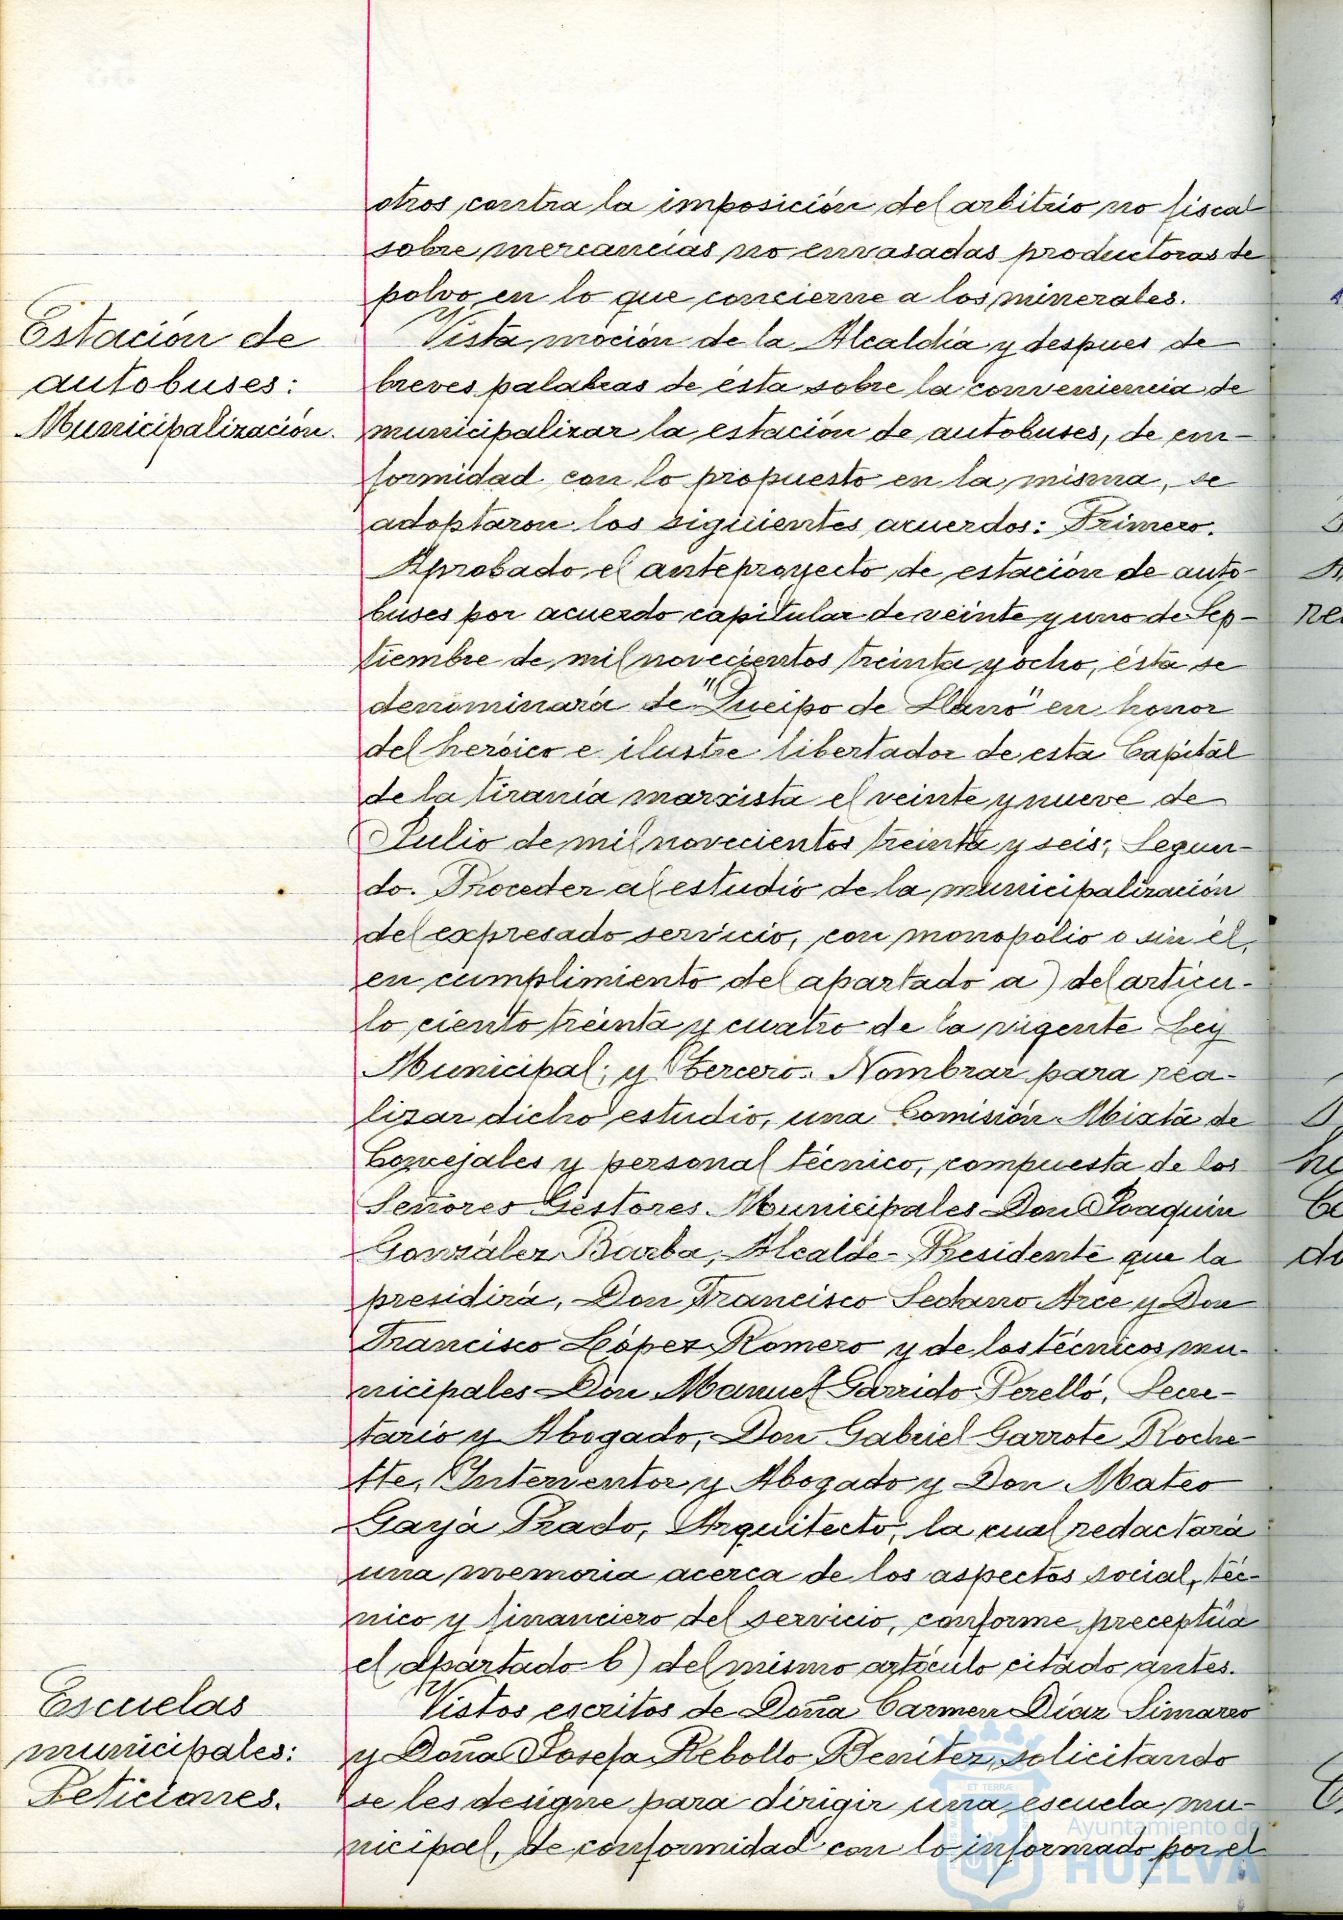 otros contra la imposición del arbitrio no fiscal
sobre mercancías no envasadas productoras de
polvo en lo que concierne a los minerales.
Estación de
autobuses:
Municipalización.
Vista moción de la Alcaldía y despues de
breves palabras de ésta sobre la conveniencia de
municipalizar la estación de autobuses, de con-
formidad con lo propuesto en la misma, se
adoptaron los siguientes acuerdos: Primero.
Aprobado el anteproyecto de estación de auto-
buses por acuerdo capitular de veinte y uno de Sep-
tiembre de mil novecientos treinta y ocho, ésta se
denominará de "Queipo de Llano" en honor
del heróico e ilustre libertador de esta Capital
de la tiranía marxista el veinte y nueve de
Julio de mil novecientos treinta y seis; Segun-
do. Proceder al estudio de la municipalización
del expresado servicio, con monopolio o sin él,
en cumplimiento del apartado a) del artícu-
lo ciento treinta y cuatro de la vigente Ley
Municipal; y tercero. Nombrar para rea-
lizar dicho estudio, una Comisión Mixta de
Concejales y personal técnico, compuesta de los
Señores Gestores Municipales Don Joaquin
González Barba, Alcalde-Presidente que la
presidirá, Don Francisco Sedano Arce y Don
Francisco López Romero y de los técnicos mu-
nicipales Don Manuel Garrido Perelló, Secre-
tario y Abogado, Don Gabriel Garrote Roche-
tte, Interventor y Abogado y Don Mateo
Gayá Prado, Arquitecto, la cual redactará
una memoria acerca de los aspectos social, téc-
nico y financiero del servicio, conforme preceptúa
el apartado b) del mismo artículo citado antes.
Escuelas
municipales:
Peticiones.
Vistos escritos de Doña Carmen Díaz Simarro
y Doña Josefa Rebollo Benítez, solicitando
se les designe para dirigir una escuela mu-
nicipal, de conformidad con lo informado por el
Ayuntamiento de
HUELVA